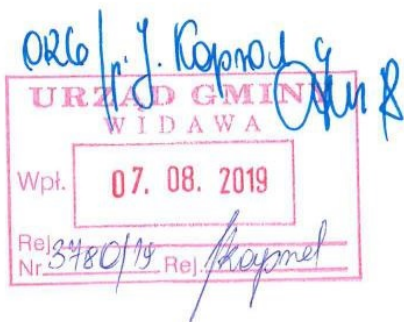 ORG / p. J.
URZĄD GMINY
WIDAWA
Wpł. 07. 08. 2019
Rej.
Nr 3780/19 Rej.